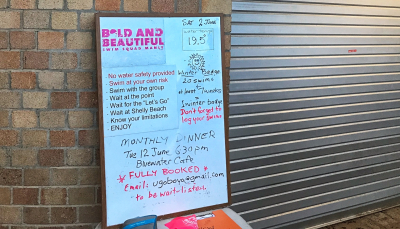 BOLD AND
BEAUTIFUL
SWIM SQUAD MANLY
Sat 2 June
19.5°
No water safety provided
Swim at your own risk
- Swim with the group
- Wait at the point
- Wait for the "Let's Go"
- Wait at Shelly Beach
- Know your limitations
ENJOY
Winter Badge
20 swims
at least
1 winter badge
Don't forget to
log your swims
MONTHLY DINNER
Tue 12 June 6:30pm
Bluewater Cafe
* FULLY BOOKED *
Email: ugoboya@gmail.com
to be wait-listed.